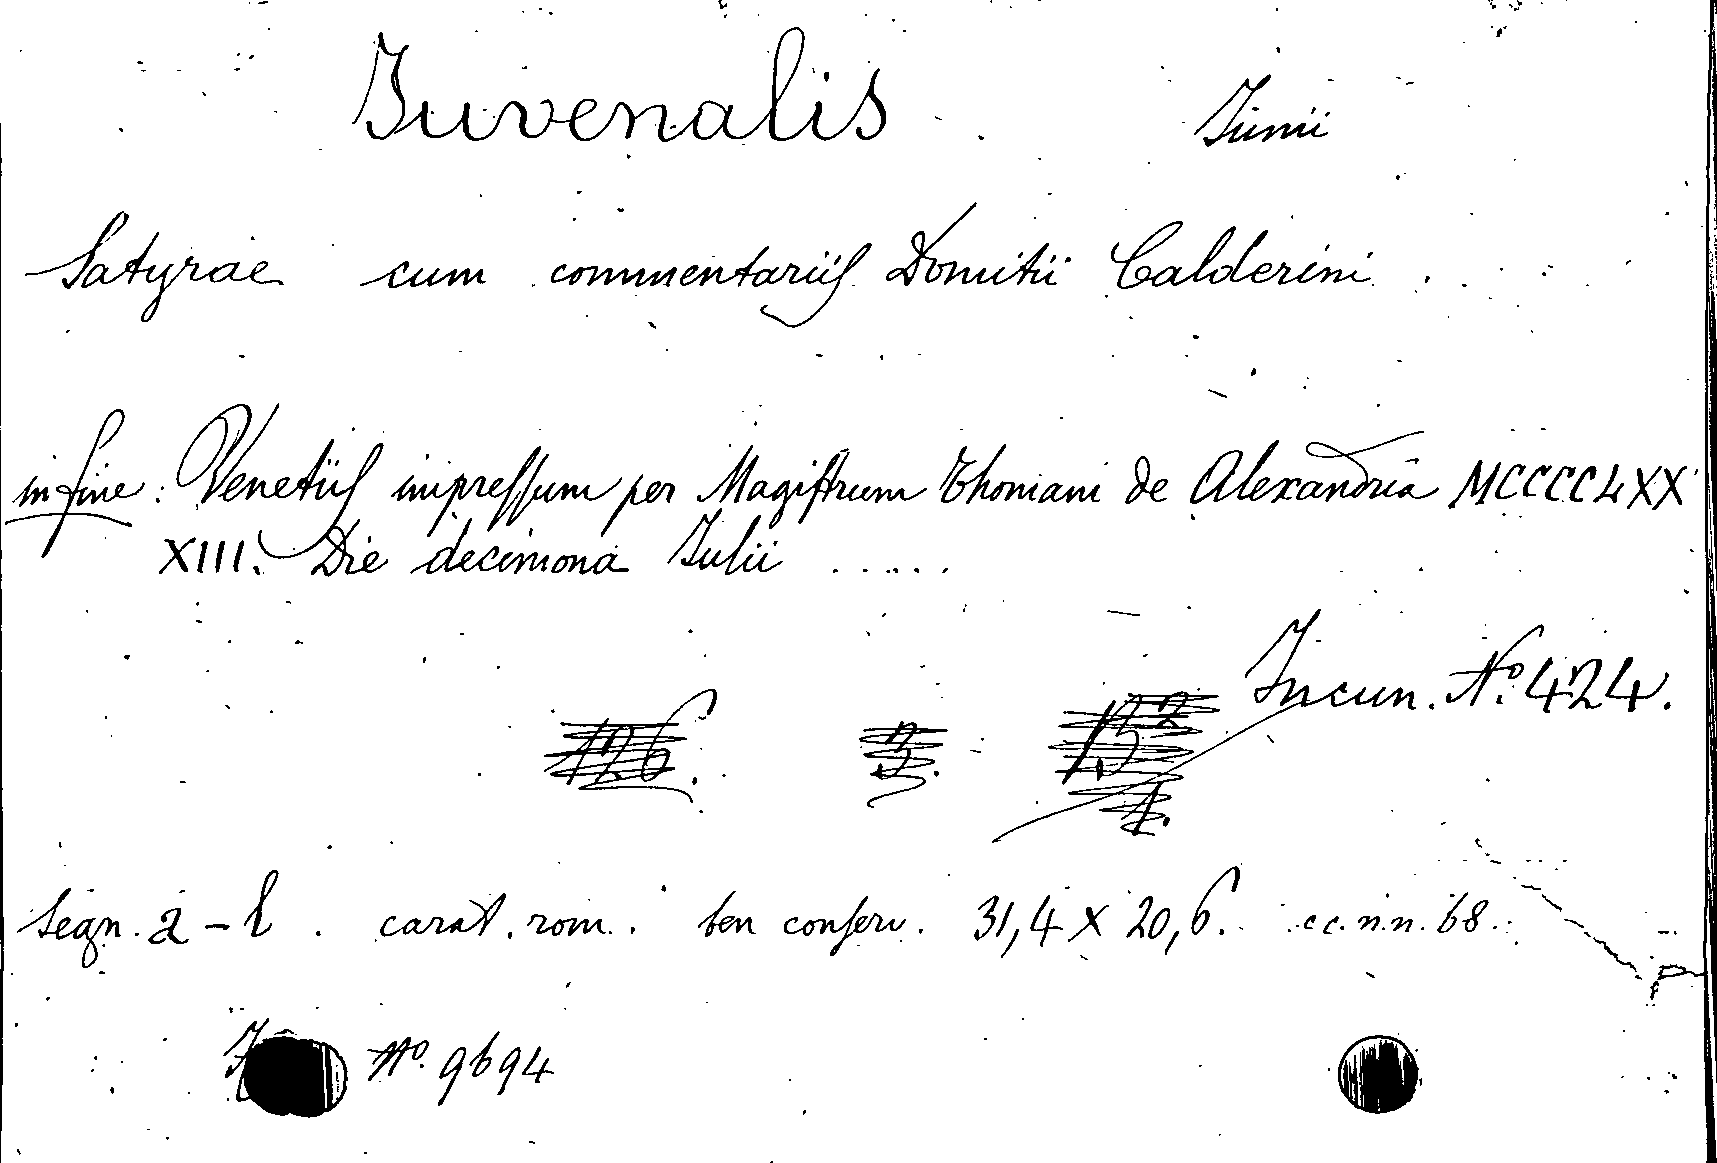 Juvenalis Junii
Satyrae cum commentariis Domitii Calderini .
in fine: Venetiis impressum per Magistrum Thomam de Alexandria MCCCCLXX
XIII. Die decimona Julii .....
Incun. No. 424.
126. 3. B2
1.
segn. a - l . carat. rom. . ben conserv. 31,4 X 20,6. cc. n.n. 68.
No. 9694